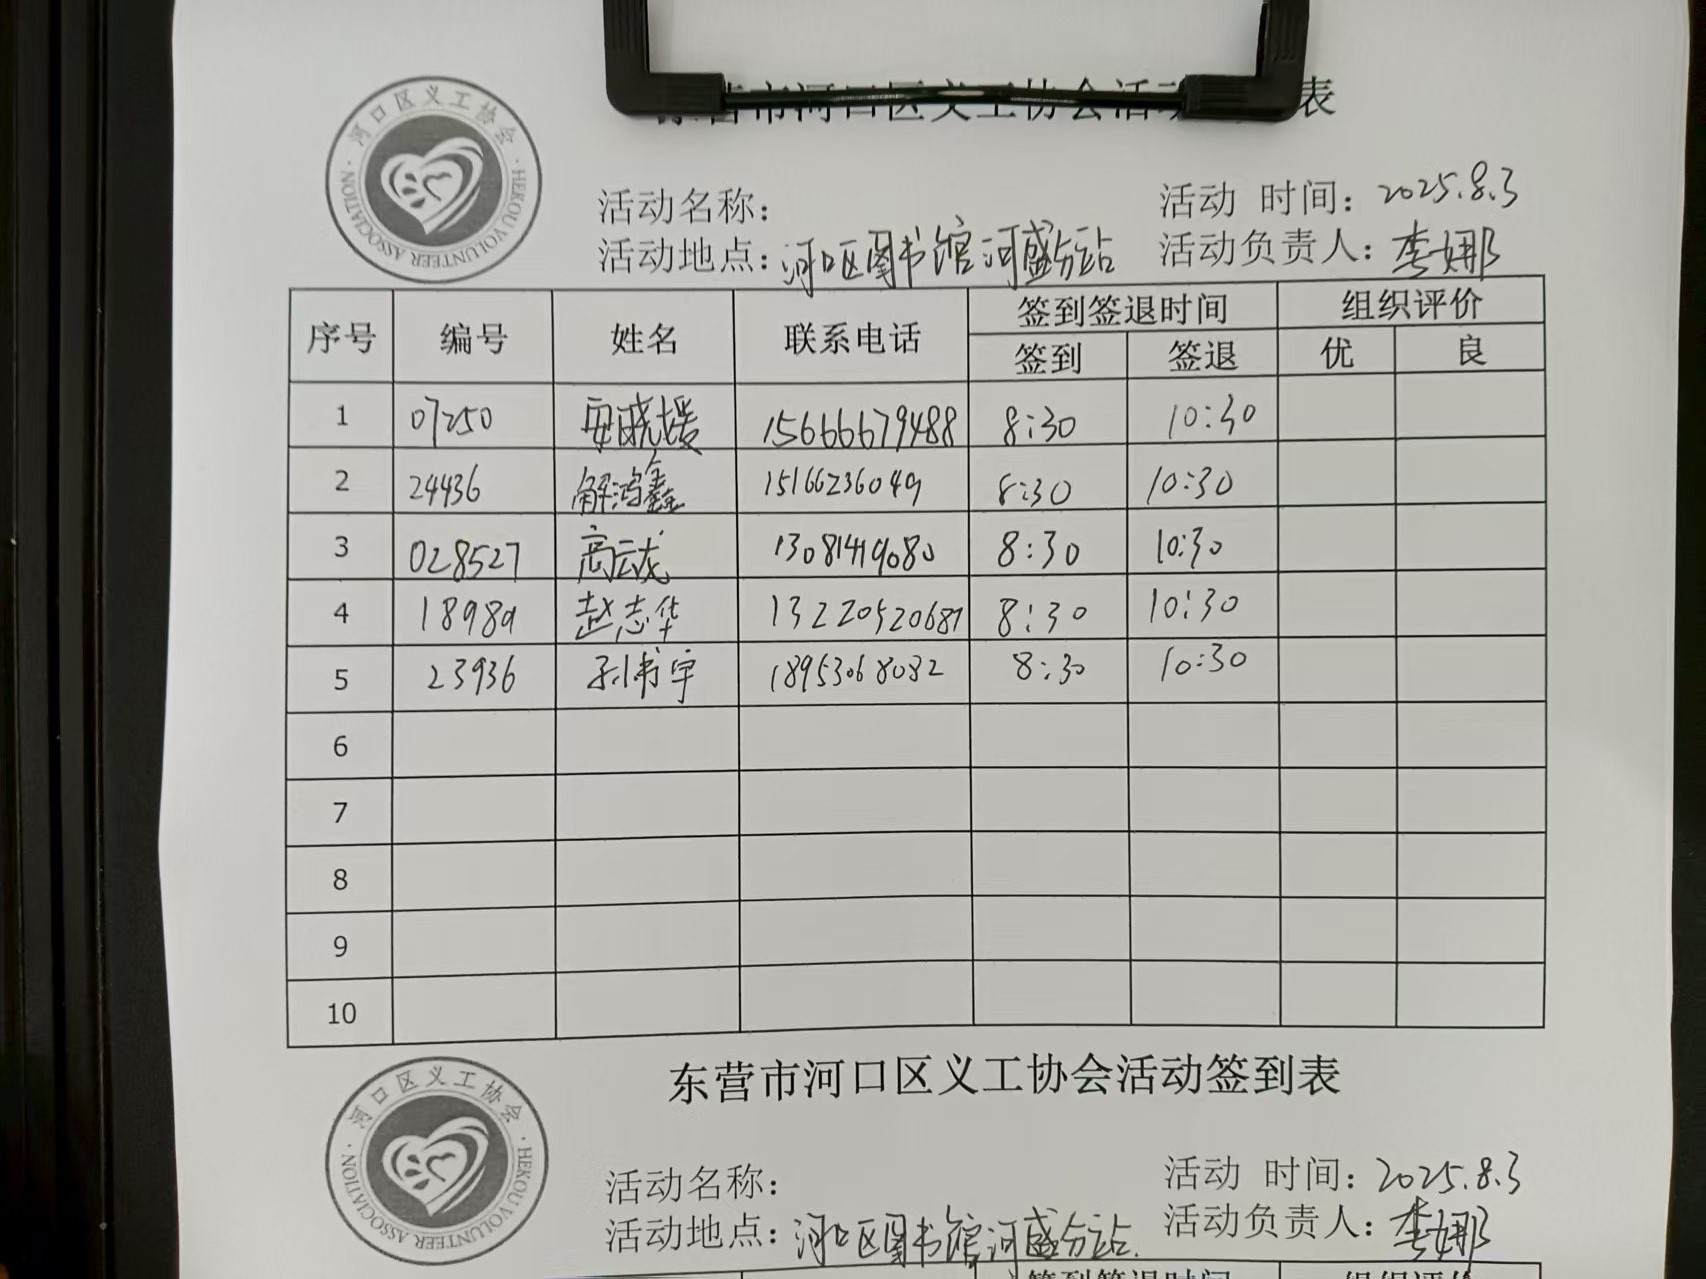 东营市河口区义工协会活动 表
河口区义工协会
HEKOU VOLUNTEER ASSOCIATION
活动名称： 活动 时间：2025.8.3
活动地点：河口区图书馆河盛分站 活动负责人：李娜
序号 编号 姓名 联系电话 签到签退时间 组织评价
签到 签退 优 良
1 07250 安晓媛 15666679488 8:30 10:30
2 24436 解鸿鑫 15166236049 8:30 10:30
3 028527 高云龙 13081419080 8:30 10:30
4 18989 赵志华 13220520687 8:30 10:30
5 23936 孙书宇 18953068032 8:30 10:30
6
7
8
9
10
东营市河口区义工协会活动签到表
河口区义工协会
HEKOU VOLUNTEER ASSOCIATION
活动名称： 活动 时间：2025.8.3
活动地点：河口区图书馆河盛分站. 活动负责人：李娜
签到签退时间 组织评价